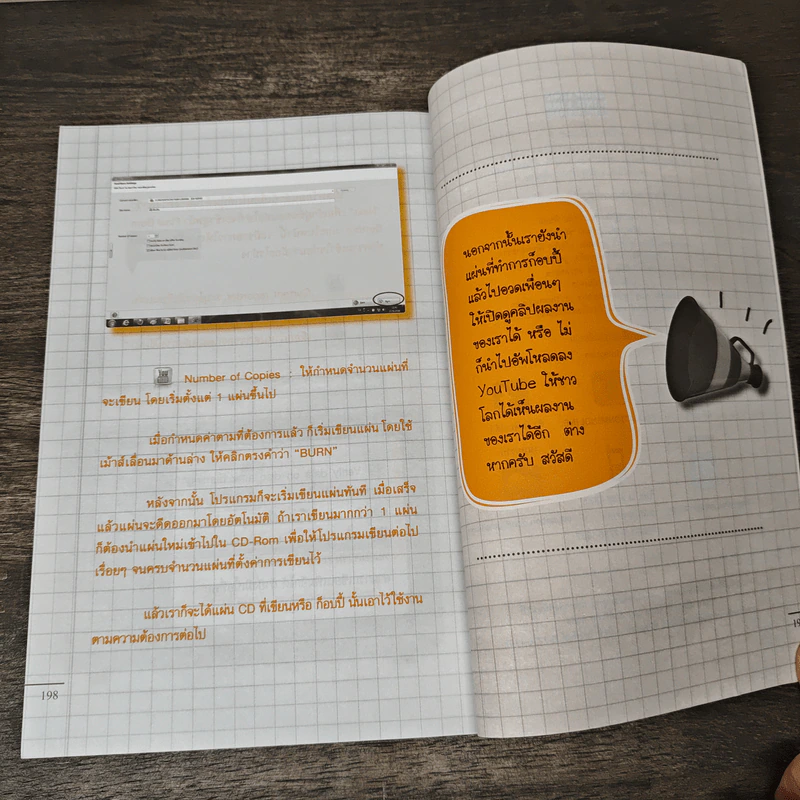 Number of Copies : ให้กำหนดจำนวนแผ่นที่
จะเขียน โดยเริ่มตั้งแต่ 1 แผ่นขึ้นไป
เมื่อกำหนดค่าตามที่ต้องการแล้ว ก็เริ่มเขียนแผ่น โดยใช้
เม้าส์เลื่อนมาด้านล่าง ให้คลิกตรงคำว่า “BURN”
หลังจากนั้น โปรแกรมก็จะเริ่มเขียนแผ่นทันที เมื่อเสร็จ
แล้วแผ่นจะดีดออกมาโดยอัตโนมัติ ถ้าเราเขียนมากกว่า 1 แผ่น
ก็ต้องนำแผ่นใหม่เข้าไปใน CD-Rom เพื่อให้โปรแกรมเขียนต่อไป
เรื่อยๆ จนครบจำนวนแผ่นที่ตั้งค่าการเขียนไว้
แล้วเราก็จะได้แผ่น CD ที่เขียนหรือ ก็อบปี้ นั้นเอาไว้ใช้งาน
ตามความต้องการต่อไป
198
นอกจากนั้นเรายังนำ
แผ่นที่ทำการก็อบปี้
แล้วไปอวดเพื่อนๆ
ให้เปิดดูคลิปผลงาน
ของเราได้ หรือ ไม่
ก็นำไปอัพโหลดลง
YouTube ให้ชาว
โลกได้เห็นผลงาน
ของเราได้อีก ต่าง
หากครับ สวัสดี